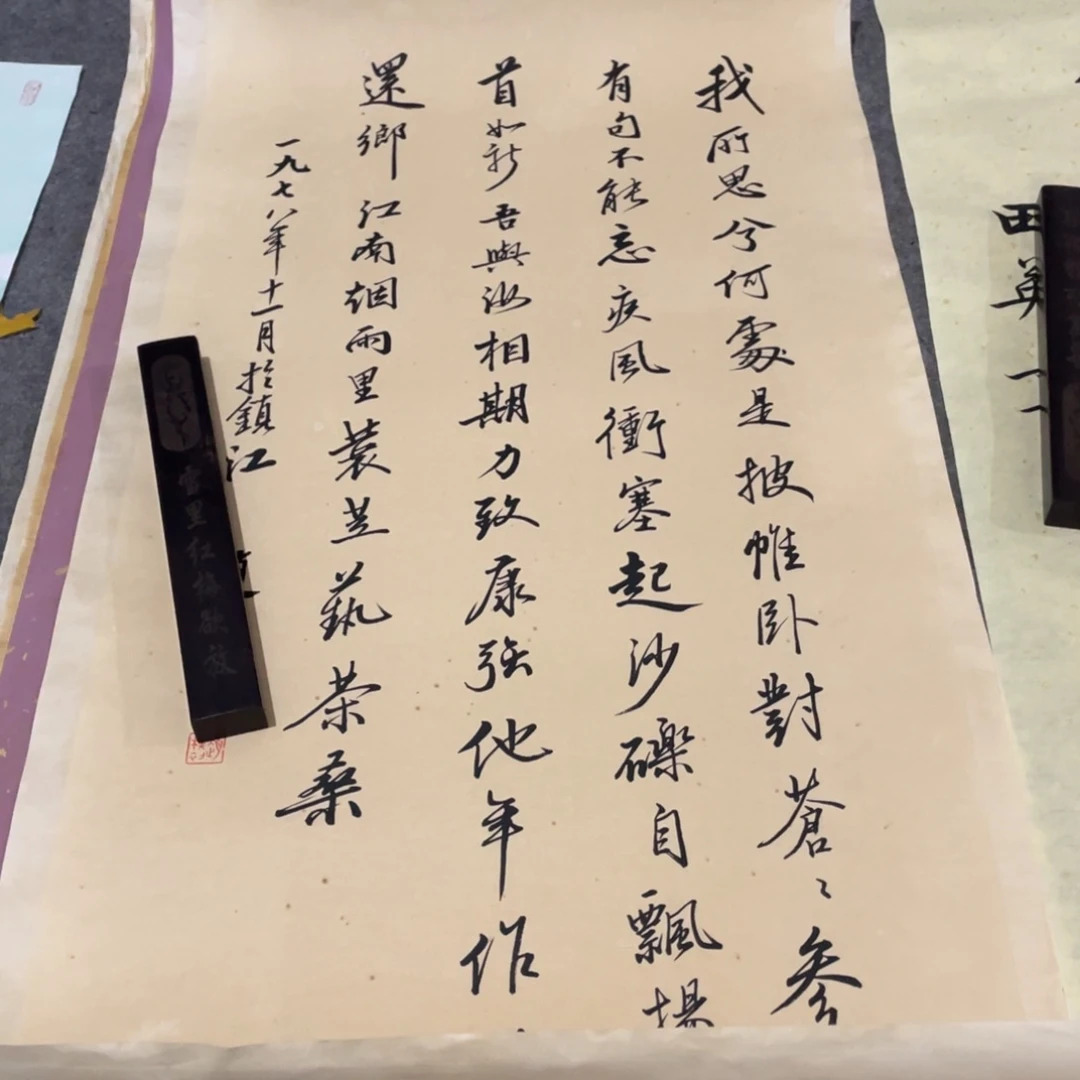 我所思兮何處是披帷卧對蒼〻參
有句不能忘疾風衝塞起沙礫自飄揚
首如新吾與汝相期力致康強他年作
還鄉江南烟雨里蓑笠藝茶桑
一九七八年十一月於鎮江
雪里红梅
田英